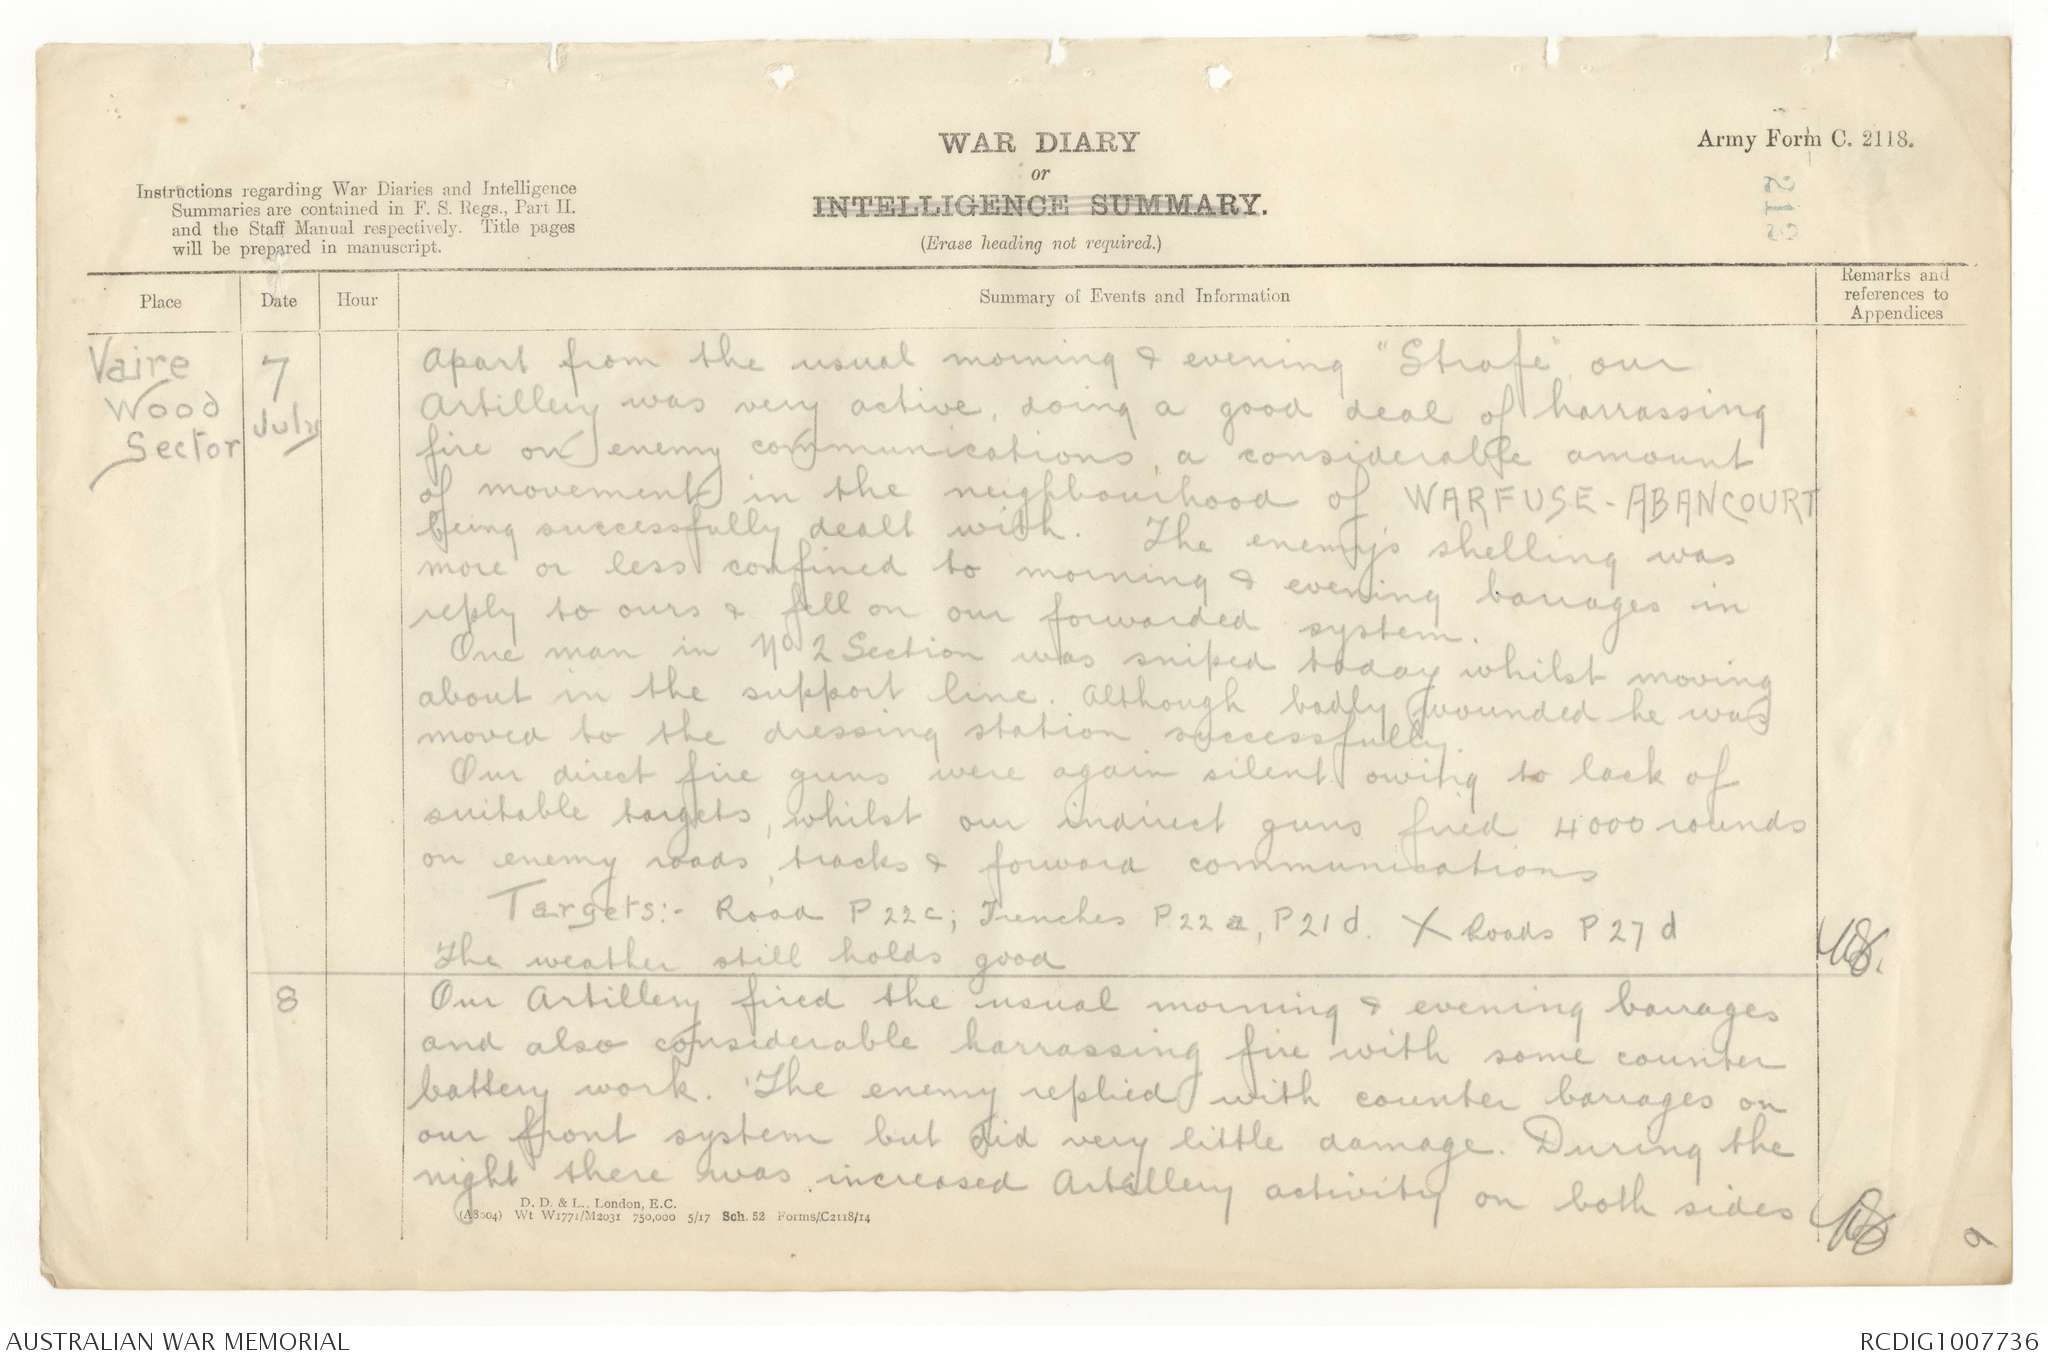 WAR DIARY
or
INTELLIGENCE SUMMARY.
(Erase heading not required.)
Army Form C. 2118.
Instructions regarding War Diaries and Intelligence
Summaries are contained in F. S. Regs., Part II.
and the Staff Manual respectively. Title pages
will be prepared in manuscript.
Place
Date
Hour
Summary of Events and Information
Remarks and
references to
Appendices
Vaire
Wood
Sector
7
July
Apart from the usual morning & evening "Strafe" our
Artillery was very active, doing a good deal of harrassing
fire on enemy communications, a considerable amount
of movement in the neighbourhood of WARFUSE-ABANCOURT
being successfully dealt with. The enemy's shelling was
more or less confined to morning & evening barrages in
reply to ours & fell on our forwarded system.
One man in No 2 Section was sniped today whilst moving
about in the support line. Although badly wounded he was
moved to the dressing station successfully.
Our direct fire guns were again silent owing to lack of
suitable targets, whilst our indirect guns fired 4000 rounds
on enemy roads, tracks & forward communications
Targets:- Road P22c; Trenches P.22a, P21d. X Roads P27d
The weather still holds good
8
Our Artillery fired the usual morning & evening barrages
and also considerable harrassing fire with some counter
battery work. The enemy replied with counter barrages on
our front system but did very little damage. During the
night there was increased Artillery activity on both sides
D. D. & L., London, E.C.
(A8004) Wt W1771/M2031 750,000 5/17 Sch. 52 Forms/C2118/14
9
AUSTRALIAN WAR MEMORIAL
RCDIG1007736